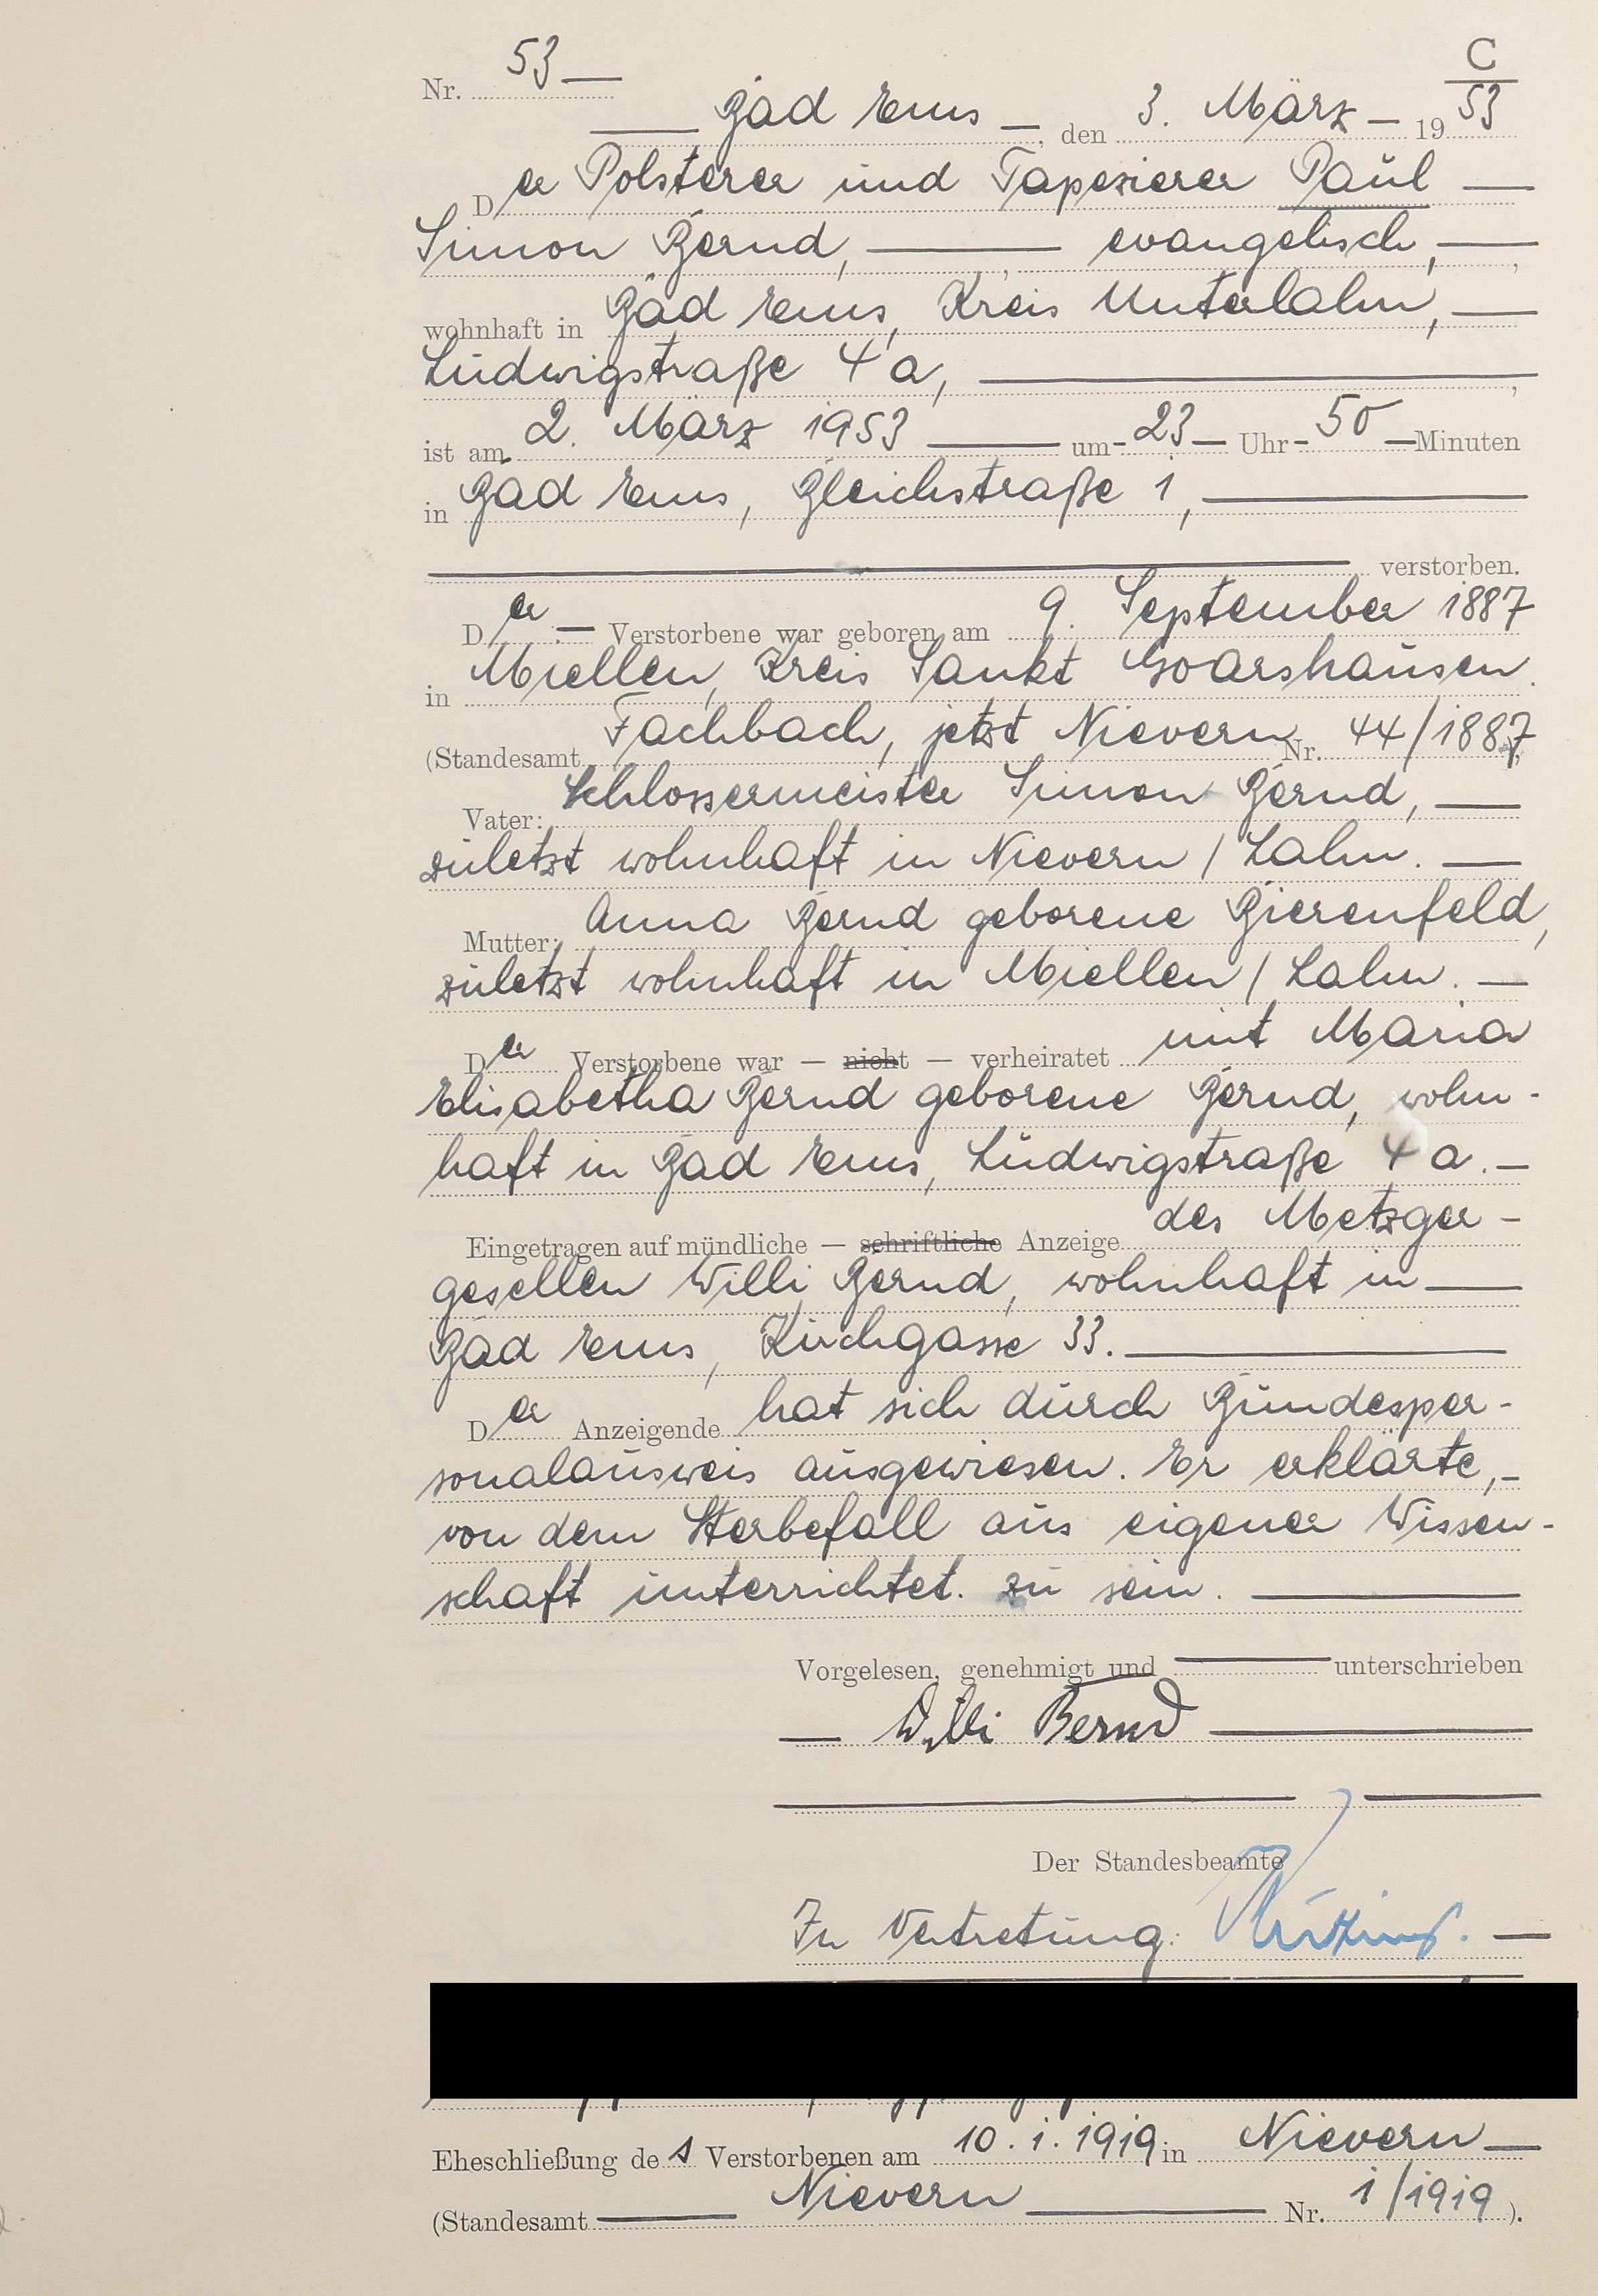 C
Nr. 53 —
— Bad Ems —, den 3. März — 19 53
Der Polsterer und Tapezierer Paul —
Simon Bernd, — , evangelisch, — ,
wohnhaft in Bad Ems, Kreis Unterlahn, —
Ludwigstraße 4a, — ,
ist am 2. März 1953 — um - 23 — Uhr - 50 — Minuten
in Bad Ems, Bleichstraße 1, —
— verstorben.
Der — Verstorbene war geboren am 9. September 1887
in Miellen, Kreis Sankt Goarshausen.
(Standesamt Fachbach, jetzt Nievern Nr. 44/1887
Vater: Schlossermeister Simon Bernd, —
zuletzt wohnhaft in Nievern / Lahn. —
Mutter: Anna Bernd geborene Bierenfeld,
zuletzt wohnhaft in Miellen / Lahn. —
Der Verstorbene war — nicht — verheiratet mit Maria
Elisabetha Bernd geborene Bernd, wohn-
haft in Bad Ems, Ludwigstraße 4a. —
Eingetragen auf mündliche — schriftliche Anzeige des Metzger-
gesellen Willi Bernd, wohnhaft in —
Bad Ems, Kirchgasse 33. —
Der Anzeigende hat sich durch Bundesper-
sonalausweis ausgewiesen. Er erklärte, -
von dem Sterbefall aus eigener Wissen-
schaft unterrichtet. zu sein. —
Vorgelesen, genehmigt und — unterschrieben
— Willi Bernd —
Der Standesbeamte
In Vertretung: —
Eheschließung des Verstorbenen am 10.1.1919 in Nievern —
(Standesamt — Nievern — Nr. 1/1919).